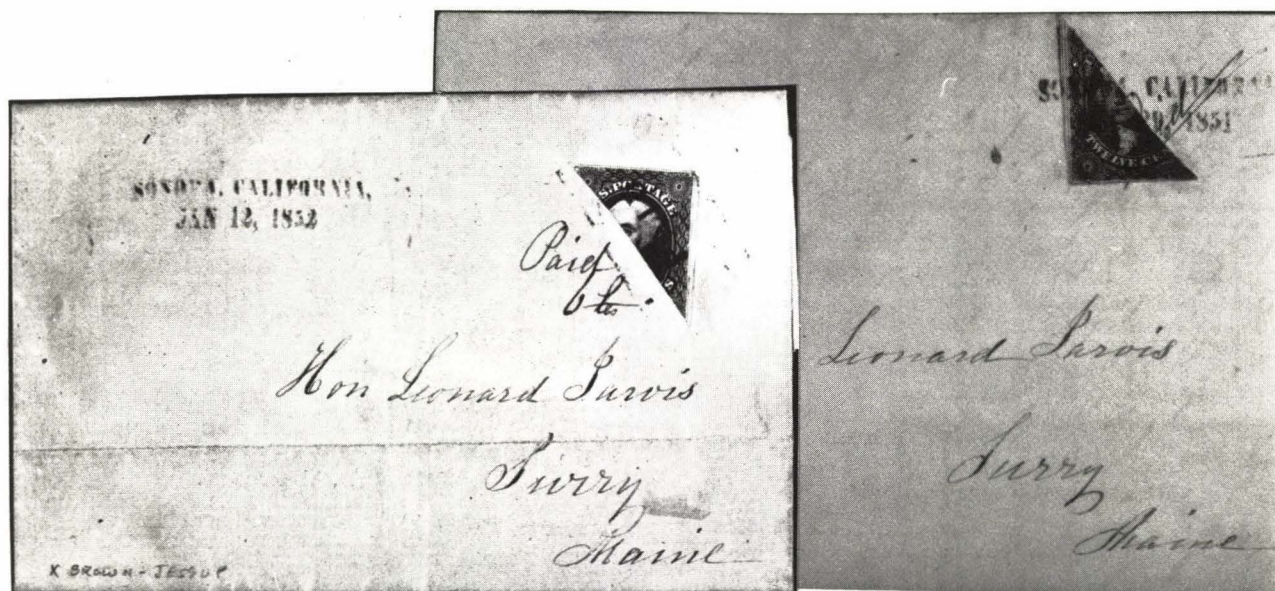 SONOMA, CALIFORNIA,
JAN 12, 1852
S. POSTAGE
Paid
6 cts
Hon Leonard Jarvis
Surry
Maine
X BROWN - JESSUP
SONOMA, CALIFORNIA
1851
TWELVE CE
Leonard Jarvis
Surry
Maine